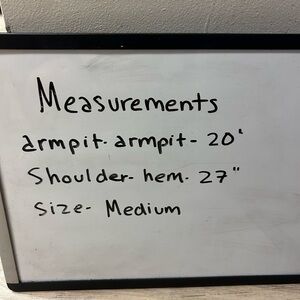 Measurements
armpit- armpit - 20'
Shoulder- hem- 27"
Size- Medium